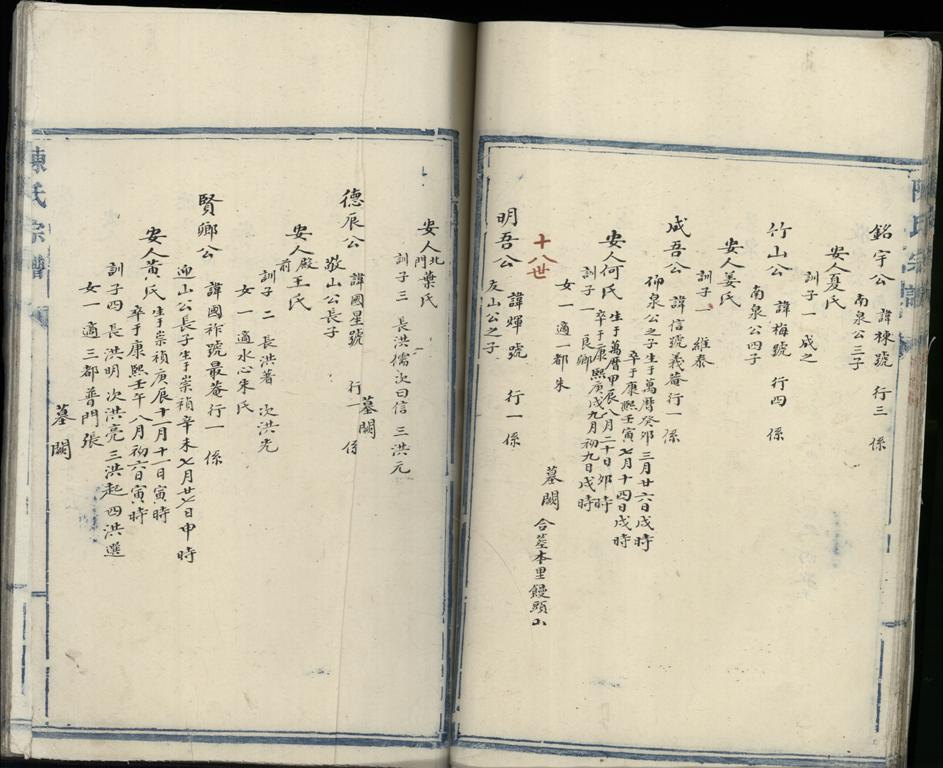 銘宇公 諱棟號 行三 係
南泉公三子
安人夏氏
訓子一 成之
竹山公 諱梅號 行四 係
南泉公四子
安人姜氏
訓子一 維泰
成吾公 諱信號義菴行一係
仰泉公之子生于萬曆癸卯三月廿六日戌時
卒于康熙壬寅七月十四日戌時
安人何氏 生于萬曆甲辰八月二十日卯時
卒于康熙庚戌九月初九日戌時
訓子一 良卿
女一 適一都朱
墓闕 合塟本里饅頭山
十八世
明吾公 諱輝號 行一 係
友山公之子
安人北門葉氏
訓子三 長洪儒次曰信 三洪元
墓闕
德辰公 諱國星號 行一 係
敬山公長子
安人殿前王氏
訓子二 長洪著 次洪光
女一適水心朱氏
賢鄉公 諱國祚號最菴行一 係
迎山公長子生于崇禎辛未七月廿七日申時
安人黃氏 生于崇禎庚辰十一月十一日寅時
卒于康熙壬午八月初六日寅時
訓子四 長洪明 次洪亮 三洪起 四洪選
女一 適三都普門張
墓闕
陳氏宗譜